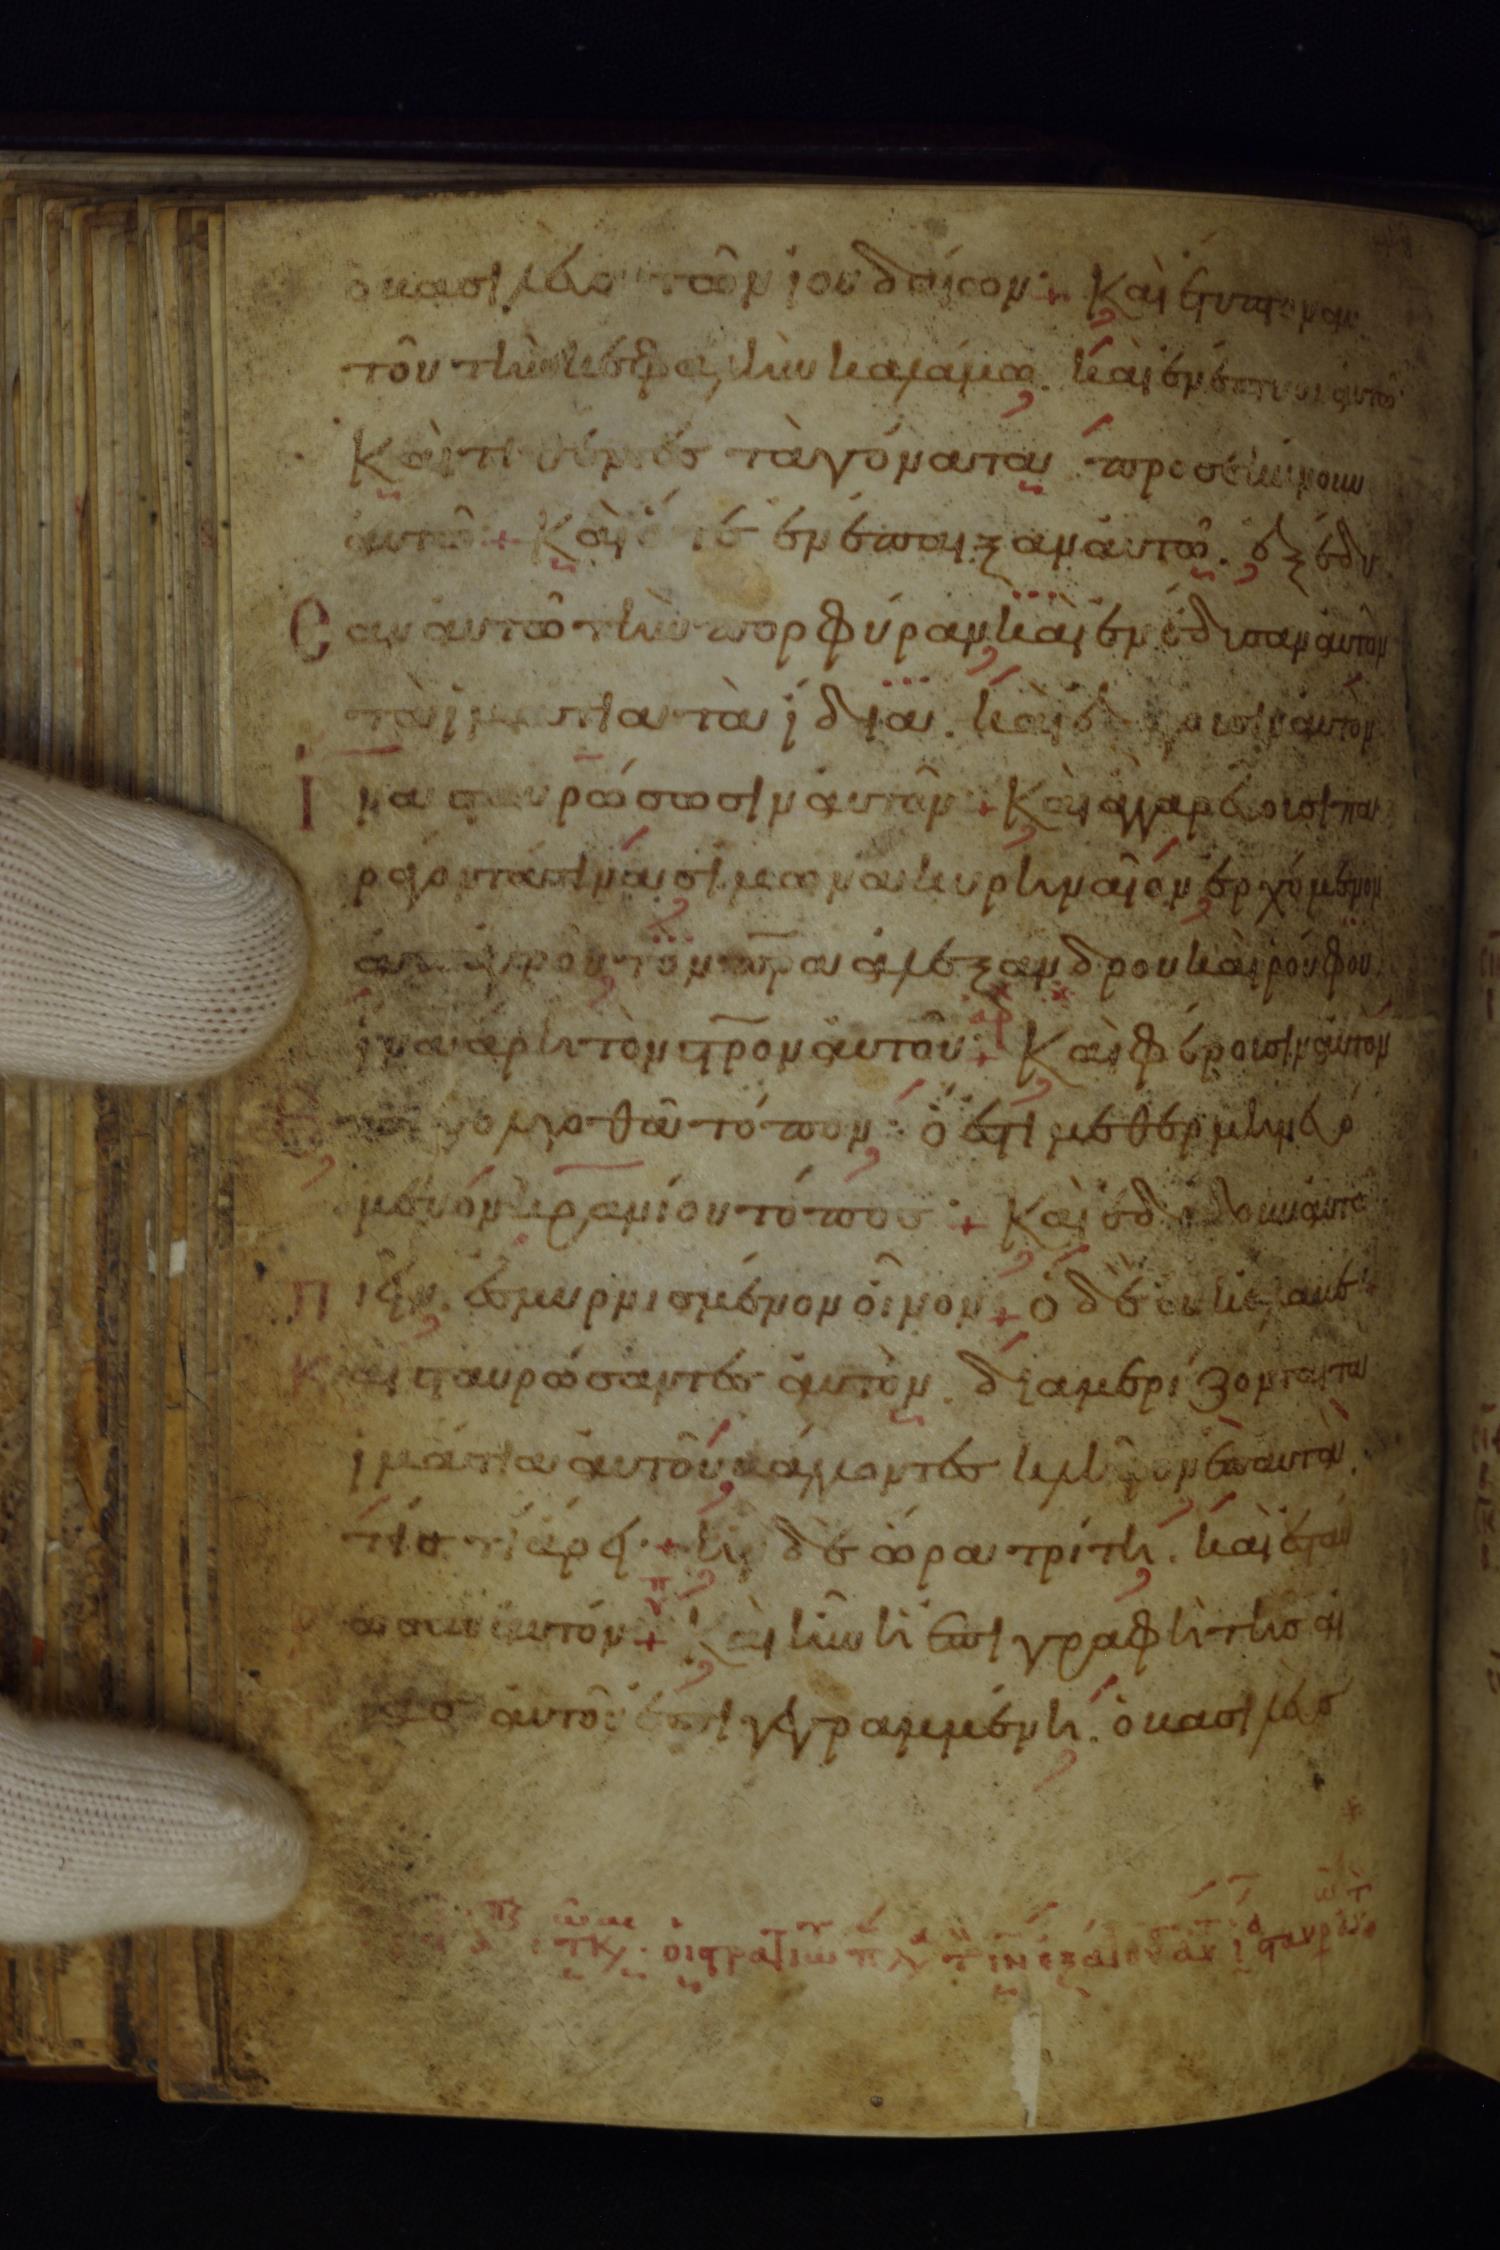 ὁ βασιλεὺς τῶν ἰουδαίων + Καὶ ἔτυπτον αυ
τοῦ τὴν κεφαλὴν καλάμω. καὶ ἐνέπτυον αὐτῶ
Καὶ τιθέντες τὰ γόνατα, προσεκύνουν
αὐτῶ + Καὶ ὅτε ἐνέπαιξαν αὐτῶ. ἐξέδυ
Cαν αὐτῶ τὴν πορφύραν, καὶ ἐνέδυσαν αὐτὸν
τὰ ἱμάτια τὰ ἴδια. καὶ ἐξάγουσιν αὐτὸν
Ἵνα σταυρώσωσιν αὐτὸν + Καὶ ἀγγαρεύουσι πα
ράγοντά τινα σίμωνα κυρηναῖον ἐρχόμενον
ἀπ' ἀγροῦ, τὸν πρα ἀλεξάνδρου καὶ ῥούφου
ἵνα ἄρη τὸν στρον αὐτοῦ + Καὶ φέρουσιν αὐτὸν
γολγοθᾶ τόπον. ὅ ἐστι μεθερμηνευό
μενον κρανίου τόπος + Καὶ ἐδίδουν αὐτῶ
Πιεῖν. ἐσμυρνισμένον οἶνον + ὁ δὲ οὐκ ἔλαβε +
Καὶ σταυρώσαντες αὐτὸν. διαμερίζονται τὰ
ἱμάτια αὐτοῦ βάλλοντες κλῆρον ἐπ' αὐτὰ.
τίς τί ἄρη + ἦν δὲ ὥρα τρίτη. καὶ ἐσταύ
ρωσαν αὐτόν + Καὶ ἦν ἡ ἐπιγραφὴ τῆς αἰ
τίας αὐτοῦ ἐπιγεγραμμένη. ὁ βασιλεὺς